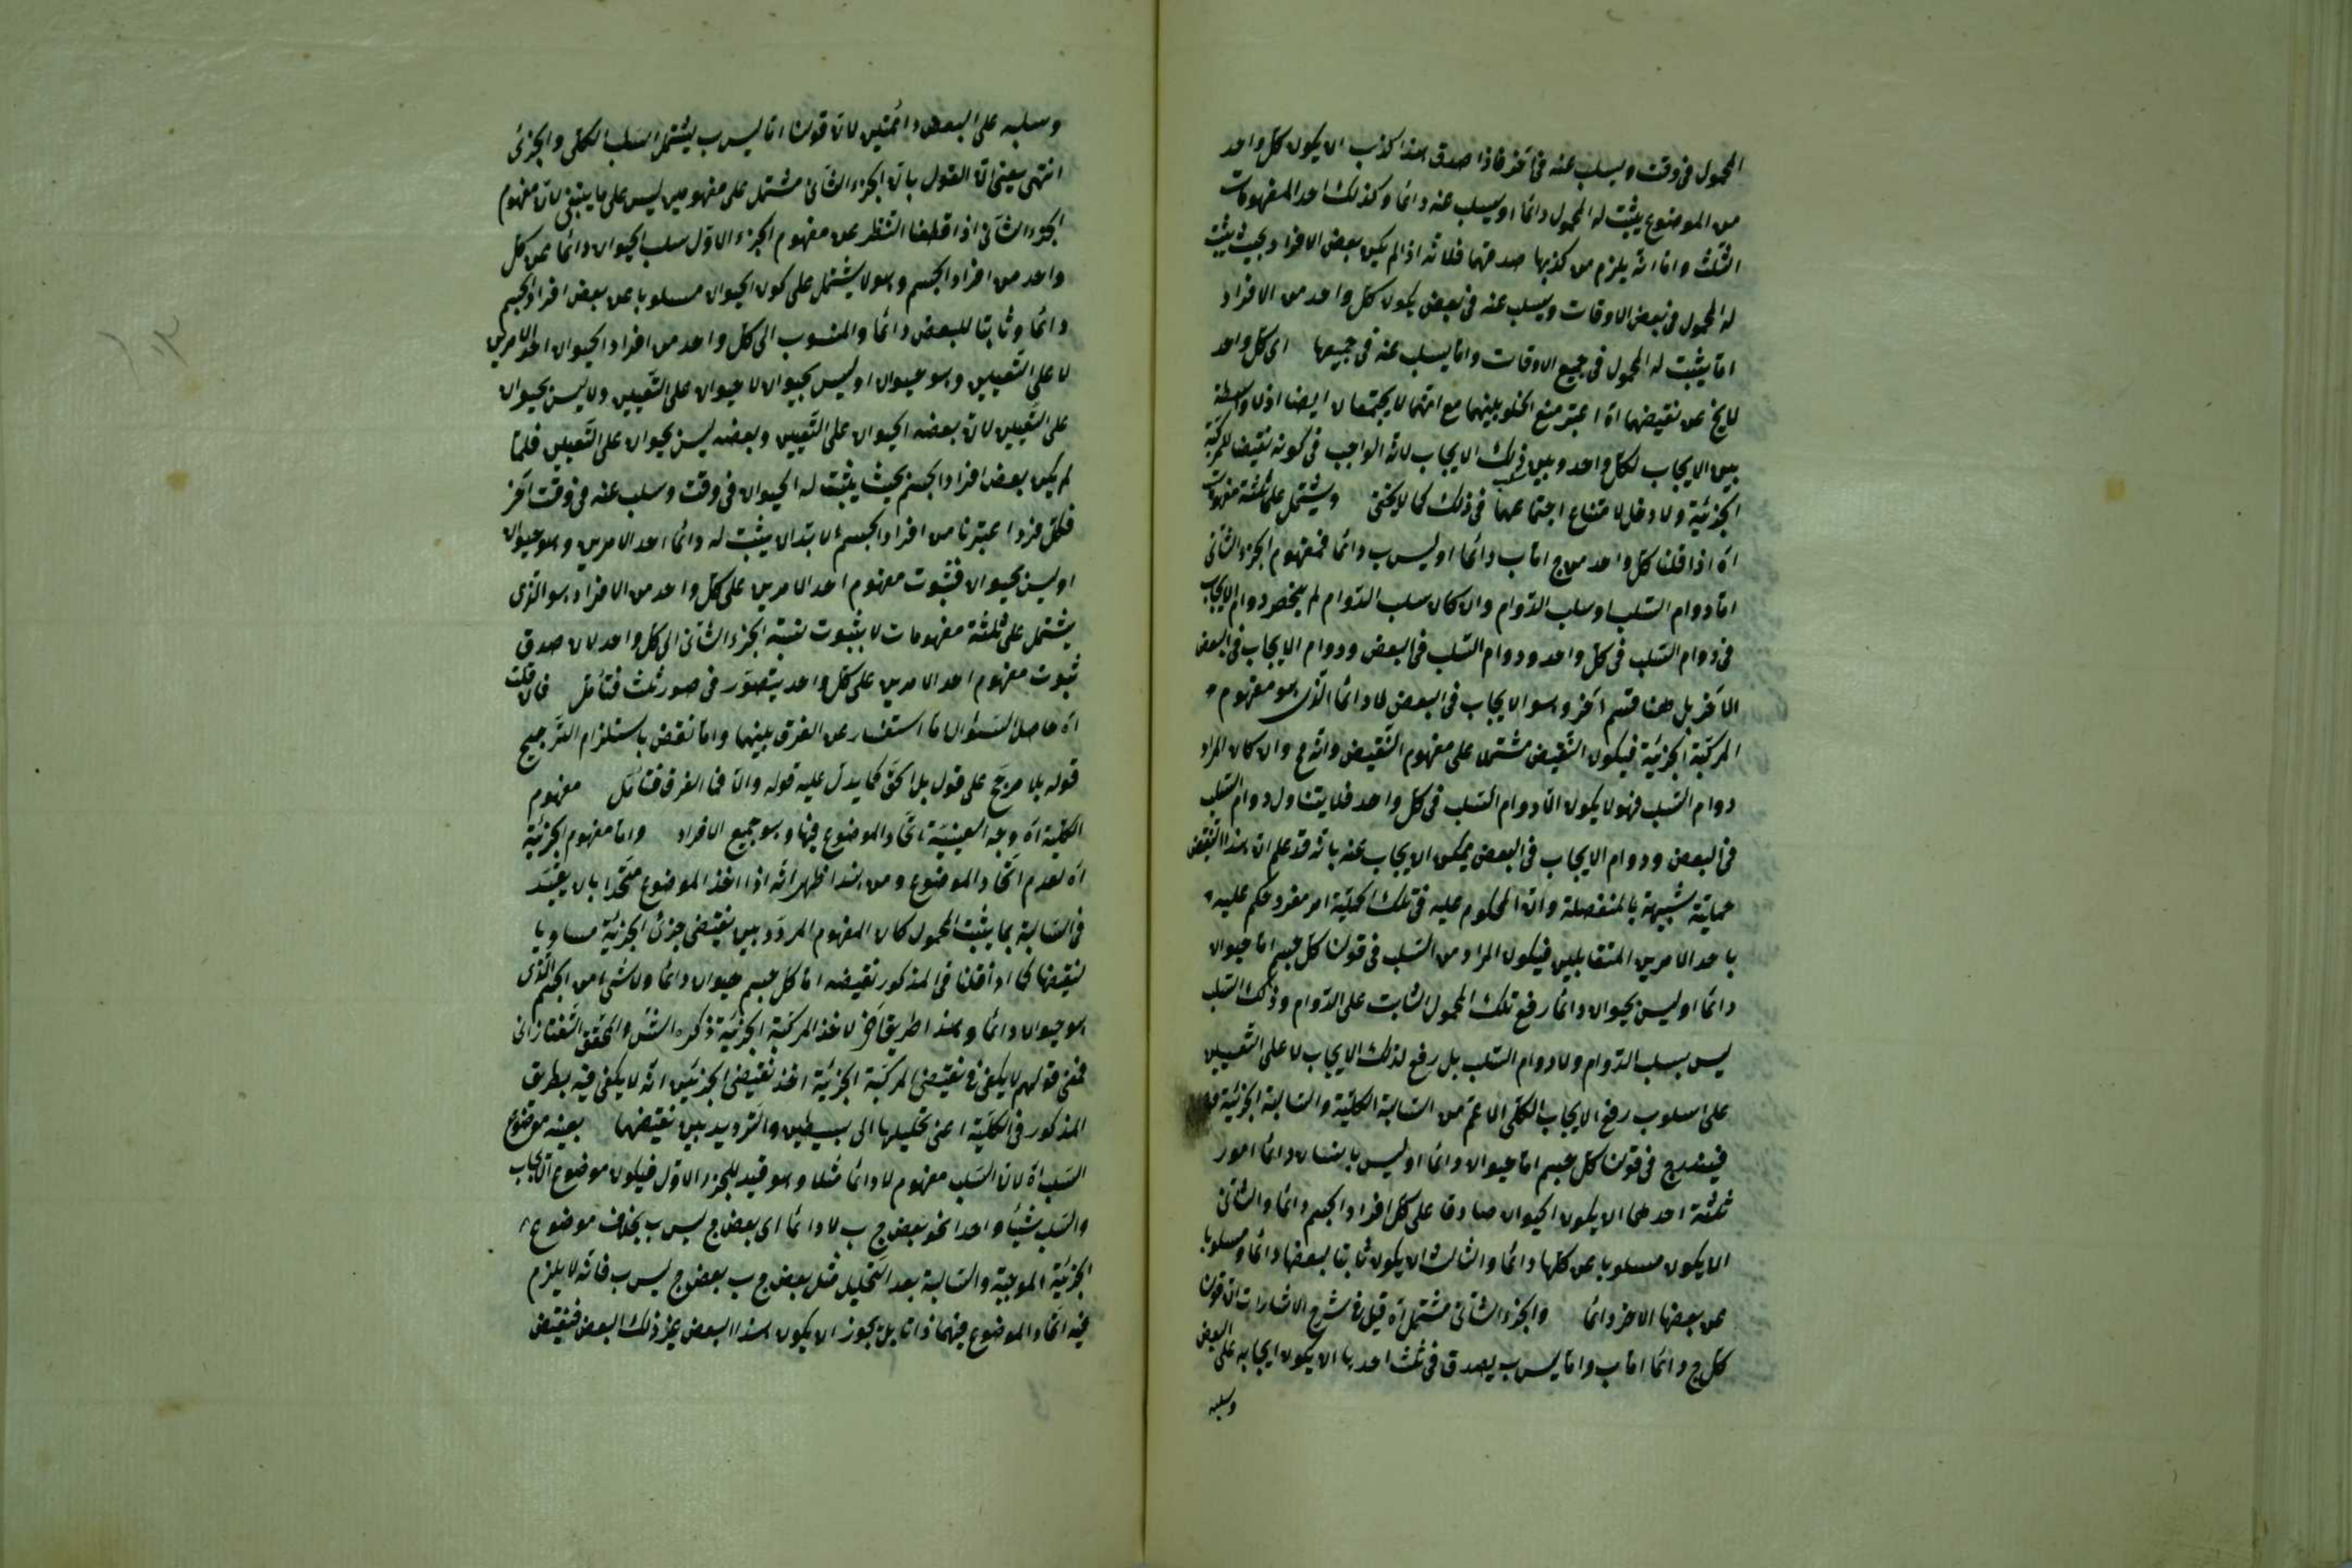 المحمول فى وقت ويسلب عنه فى آخر فاذا صدق هذا كذب ان يكون كل واحد
من الموضوع يثبت له المحمول دائما او يسلب عنه دائما وكذلك احد المفهومات
الثلث واما انه يلزم من كذبها صدقها فلانه اذا لم يكن بعض الافراد بحيث يثبت
له المحمول فى بعض الاوقات ويسلب عنه فى بعض يكون كل واحد من الافراد
اما يثبت له المحمول فى جميع الاوقات واما يسلب عنه فى جميعها اى كل واحد
لا يخ عن نقيضهما اه اعتبر منع الخلو بينهما مع انهما لا يجتمعان ايضا اذ لا واسطة
بين الايجاب لكل واحد وبين سلب ذلك الايجاب لانه الواجب فى كونه نقيضا للمركبة
الجزئية ولا دخل لامتناع اجتماعهما فى ذلك كما لا يخفى ويشتمل على ثلثة مفهومات
اه اذا قلنا كل واحد من ج اما ب دائما او ليس ب دائما فمفهوم الجزء الثانى
اما دوام السلب او سلب الدوام وان كان سلب الدوام لم ينحصر دوام الايجاب
فى دوام السلب فى كل واحد ودوام السلب فى البعض ودوام الايجاب فى البعض
الآخر بل هنا قسم آخر وهو الايجاب فى البعض لا دائما الذى هو مفهوم
المركبة الجزئية فيكون النقيض مشتملا على مفهوم النقيض وانه مح وان كان المراد
دوام السلب فهو لا يكون الا دوام السلب فى كل واحد فلا يتناول دوام السلب
فى البعض ودوام الايجاب فى البعض يمكن ان يجاب عنه بانه قد علم ان هذا النقيض
حملية شبيهة بالمنفصلة وان المحكوم عليه فى تلك الحملية امر مفرد حكم عليه
باحد الامرين المتقابلين فيكون المراد من السلب فى قولنا كل جسم اما حيوان
دائما او ليس بحيوان دائما رفع تلك المحمول الثابت على الدوام وذلك السلب
ليس بسلب الدوام ولا دوام السلب بل رفع لذلك الايجاب لا على التعيين
على اسلوب رفع الايجاب الكلى الاعم من السالبة الكلية والسالبة الجزئية
فيندرج فى قولنا كل جسم اما حيوان دائما او ليس بانسان دائما امور
ثلثة احدهما ان يكون الحيوان صادقا على كل افراد الجسم دائما والثانى
ان يكون مسلوبا عن كلها دائما والثالث ان يكون ثابتا لبعضها دائما ومسلوبا
عن بعضها الاخر دائما والجزء الثانى مشتمل اه قيل فى شرح الاشارات ان قولنا
كل ج دائما اما ب واما ليس ب يصدق فى ثلث احدها ان يكون ايجابه على البعض
وسلبه
وسلبه على البعض دائمتين لان قولنا اما ليس ب يشتمل السلب الكلى والجزئى
انتهى يعنى ان القول بان الجزء الثانى مشتمل على مفهومين ليس على ما ينبغى لان مفهوم
الجزء الثانى اذا قطعنا النظر عن مفهوم الجزء الاول سلب الحيوان دائما عن كل
واحد من افراد الجسم وهو لا يشتمل على كون الحيوان مسلوبا عن بعض افراد الجسم
دائما وثابتا للبعض دائما والمنسوب الى كل واحد من افراد الحيوان احد الامرين
لا على التعيين وهو حيوان او ليس بحيوان لا حيوان على التعيين ولا ليس بحيوان
على التعيين لان بعضه الحيوان على التعيين وبعضه ليس بحيوان على التعيين فلما
لم يكن بعض افراد الجسم بحيث يثبت له الحيوان فى وقت وسلب عنه فى وقت آخر
فكل فرد اعتبرنا من افراد الجسم لا بد ان يثبت له دائما احد الامرين وهو حيوان
او ليس بحيوان فثبوت مفهوم احد الامرين على كل واحد من الافراد هو الذى
يشتمل على ثلثة مفهومات لا بثبوت نسبة الجزء الثانى الى كل واحد لان صدق
ثبوت مفهوم احد الامرين على كل واحد يتصور فى صور ثلث فتأمل فان قلت
اه حاصل السؤال اما استفسار عن الفرق بينهما واما نقض باستلزام الترجيح
قوله بلا مرجح على قول بلا الحق كما يدل عليه قوله والا فما الفرق فتأمل مفهوم
الكلية اه وجه العينية اتحاد الموضوع فيها وهو جميع الافراد واما مفهوم الجزئية
اه لعدم اتحاد الموضوع ومن هذا ظهر انه اذا اخذ الموضوع متحدا بان يقيد
فى السالبة بما يثبت المحمول كان المفهوم المردد بين نقيضى جزئى الجزئية مساويا
لنقيضها كما اذا قلنا فى المذكور نقيضه اما كل جسم حيوان دائما ولا شئ من الجسم الذى
هو حيوان دائما وهذا طريق آخر لاخذ المركبة الجزئية ذكره الش والمحقق التفتازانى
فمعنى قولهم لا يكفى فى نقيض المركبة الجزئية اخذ نقيضى الجزئين انه لا يكفى فيه بطريق
المذكور فى الكلية اعنى تحليلها الى بسيطين والترديد بين نقيضهما بعينه موضوع
السلب اه لان السلب مفهوم لا دائما مثلا وهو قيد للجزء الاول فيكون موضوع الايجاب
والسلب شيئا واحدا نحو بعض ج ب لا دائما اى بعض ج ليس ب بخلاف موضوع
الجزئية الموجبة والسالبة بعد التحليل مثل بعض ج ب بعض ج ليس ب فانه لا يلزم
فيه اتحاد الموضوع فيهما ذاتا بل يجوز ان يكون هذا البعض غير ذلك البعض فنقيض